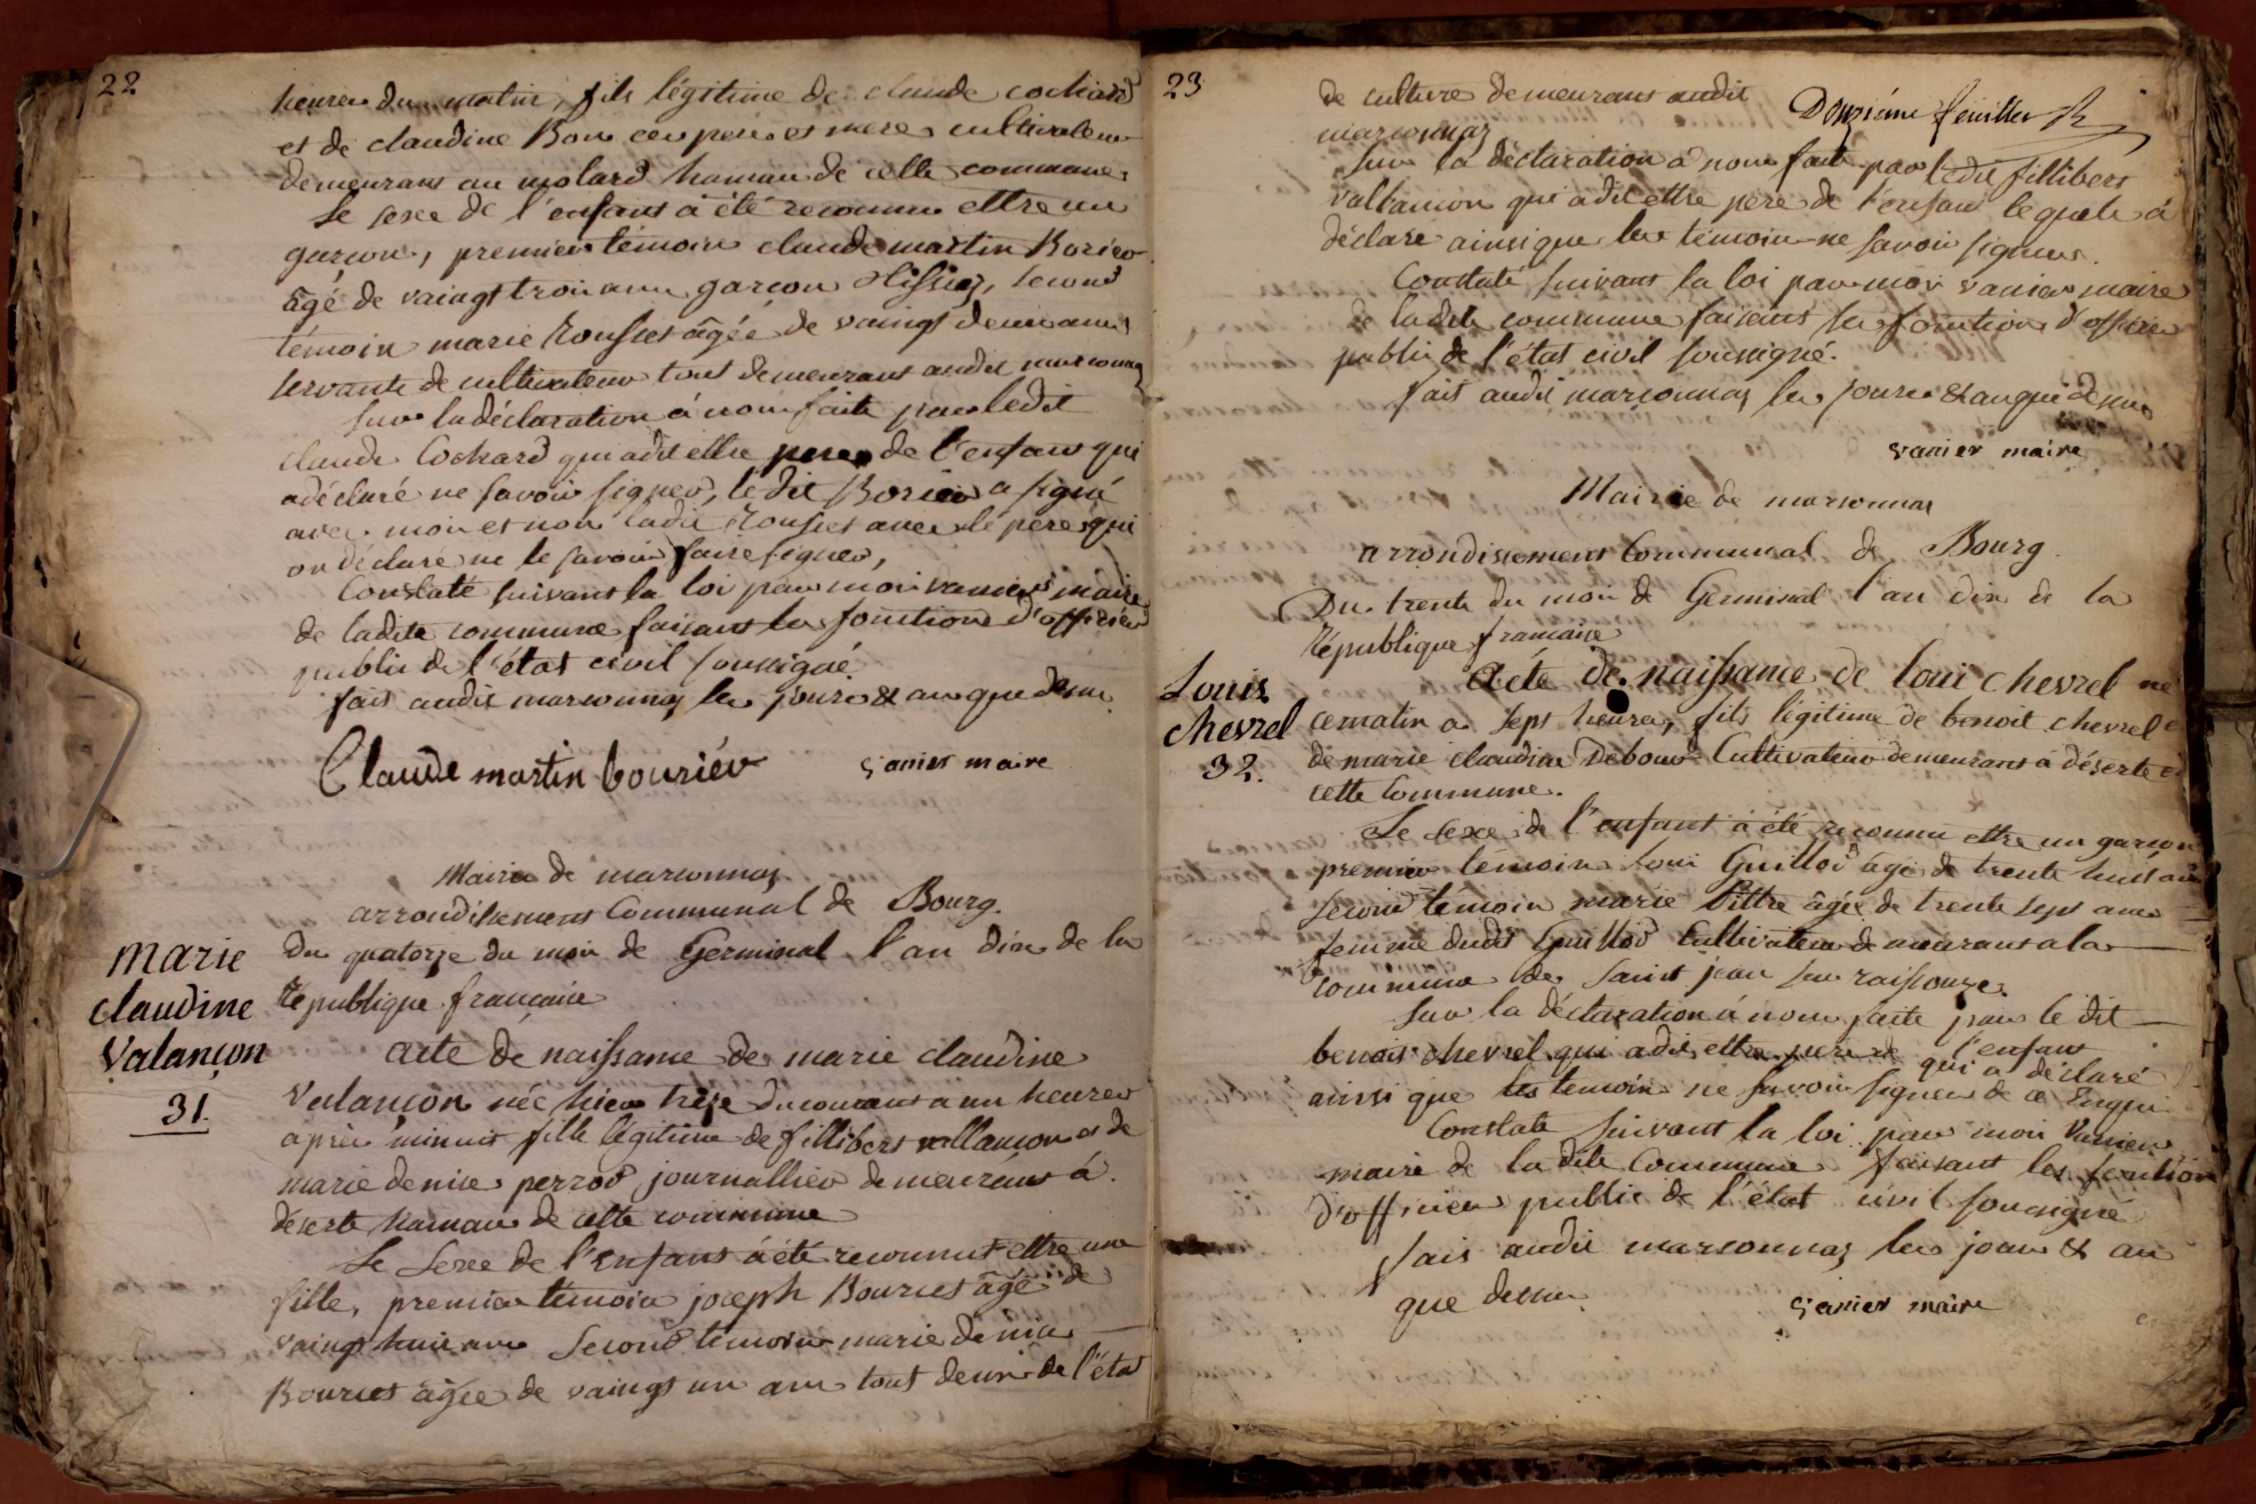 22
heures du matin, fils légitime de claude cochard
et de claudine Bon ces pere et mere cultivateur
demeurans au molard hamau de cette commune
Le sexe de l'enfans à été reconnu ettre un
garçon, premier témoin claude martin Borier
âgé de vaingt trois ans garçon tissier, second
témoin marie Rousset âgée de vaingt deux ans
servante de cultivateur tout demeurans audit marsonnas
Sur la déclaration à nous faite par ledit
claude Cochard qui a dit ettre pere de l'enfans qui
a déclaré ne savoir signer, le dit Borier a signé
avec moi et non ladit Rousset avec le pere qui
on déclaré ne le savoir faire signer,
Constaté suivant la loi par moi vanier maire
de ladite commune faisans les fonction d'officier
public de l'état civil soussigné.
fait audit marsonnas les jours & an que dessu
Claude martin bouriér
vanier maire
Mairie de marsonnas
arrondissement Communal de Bourg.
marie
claudine
valançon
31.
Du quatorze du mois de Germinal l'an dix de la
République française
acte de naissance de marie claudine
Valançon née hier treze du courant a un heures
après minuit fille légitime de fillibert vallançon et de
marie denise perrod journallier demeurans à
déserte hamau de cette commune
Le Sexe de l'enfans à été reconnut ettre une
fille, premier témoin joseph Bourcet âgé de
vaingt huit ans Second témoin marie denise
Bourcet âgée de vaingt un ans tout deux de l'état
23
Douzième feuillet
de culture demeurans audit
marsonnas
Sur la déclaration a nous faite par ledit fillibert
vallançon qui a dit ettre pere de l'enfant lequele à
déclare ainsi que les témoin ne savoir signer.
Constaté suivant la loi par moi vanier maire
de ladite commune faisans les fonction d'officier
public de l'état civil soussigné.
fait audit marsonnas les jours & an que dessus
vanier maire
Mairie de marsonnas
arrondissement Communal de Bourg
Du trente du mois de Germinal l'an dix de la
République française
Louis
chevrel
32.
acte de naissance de loui chevrel né
ce matin a sept heures, fils légitime de benoit chevrel e
de marie claudine Debour Cultivateur demeurans à déserte de
cette Commune.
Le Sexe de l'enfant à été reconnu ettre un garçon
premier témoin loui Guillod âgé de trente huit ans
second témoin marie Pittre âgée de trente sept ans
femme dudit Guillod Cultivateur demeurans a la
commune de Saint jean sur raissouze.
Sur la déclaration à nous faite par le dit
benoit chevrel qui a dit ettre pere de l'enfant
qui a déclaré
ainsi que les temoin ne savoir signer de ce Enquis
Constaté suivant la loi par moi Vanier
maire de la dite Commune faisant les fonction
d'officier public de l'état civil soussigné
fait audit marsonnas les jour & an
que dessu.
vanier maire